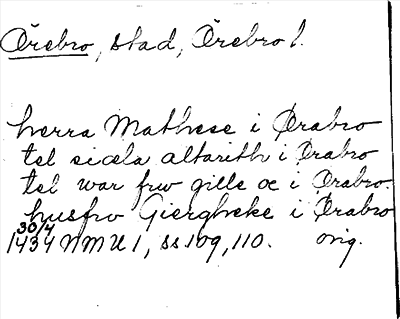 Örebro, stad, Örebro l.
herra Mathese i Ørabro
tel siæla altarith i Ørabro
tel war frw gille oc i Ørabro.
husfrv Giergheke i Ørabro
30/4
1434 NMU 1, ss 109, 110. orig.